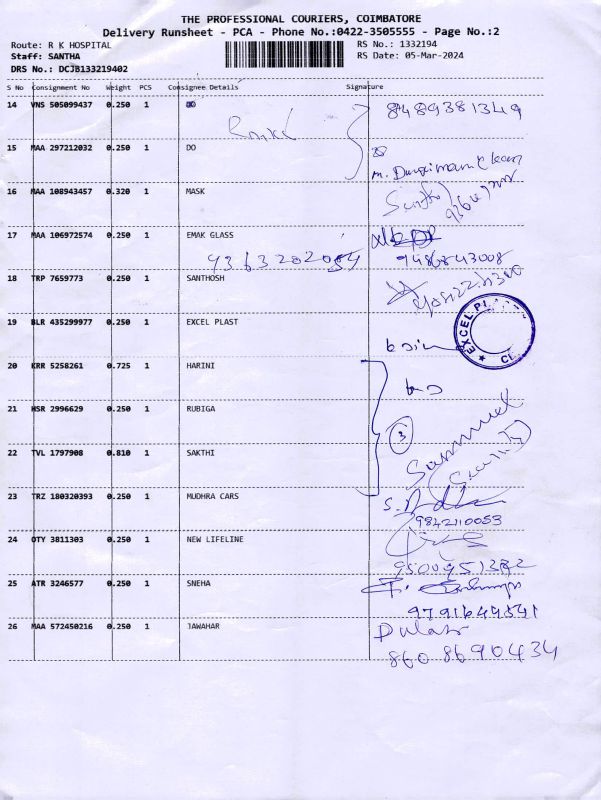 THE PROFESSIONAL COURIERS, COIMBATORE
Delivery Runsheet - PCA - Phone No.:0422-3505555 - Page No.:2
Route: R K HOSPITAL
RS No.: 1332194
Staff: SANTHA
RS Date: 05-Mar-2024
DRS No.: DCJB133219402
S No Consignment No Weight PCS Consignee Details Signature
14 VNS 505099437 0.250 1 8489381349
15 MAA 297212032 0.250 1 DO
16 MAA 108943457 0.320 1 MASK
17 MAA 106972574 0.250 1 EMAK GLASS
9486843008
18 TRP 7659773 0.250 1 SANTHOSH
19 BLR 435299977 0.250 1 EXCEL PLAST
EXCEL
20 KRR 5258261 0.725 1 HARINI
21 HSR 2996629 0.250 1 RUBIGA
3
22 TVL 1797908 0.810 1 SAKTHI
Sammuel
23 TRZ 180320393 0.250 1 MUDHRA CARS
9842110053
24 OTY 3811303 0.250 1 NEW LIFELINE
25 ATR 3246577 0.250 1 SNEHA
9791649541
26 MAA 572450216 0.250 1 JAWAHAR
860 8690434